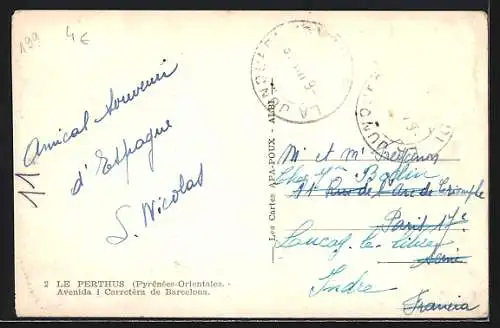 199 4€
LA JUNQUERA
Amical Souvenir
d'Espagne
S. Nicolas
11
Les Cartes APA-POUX - ALBI
JUNQUERA
M. et Mme
Chez Mme
11 Rue de l'Arc de Triomphe
Paris 17e
Indre
Francia
2 LE PERTHUS (Pyrénées-Orientales. -
Avenida i Carretèra de Barcelona.